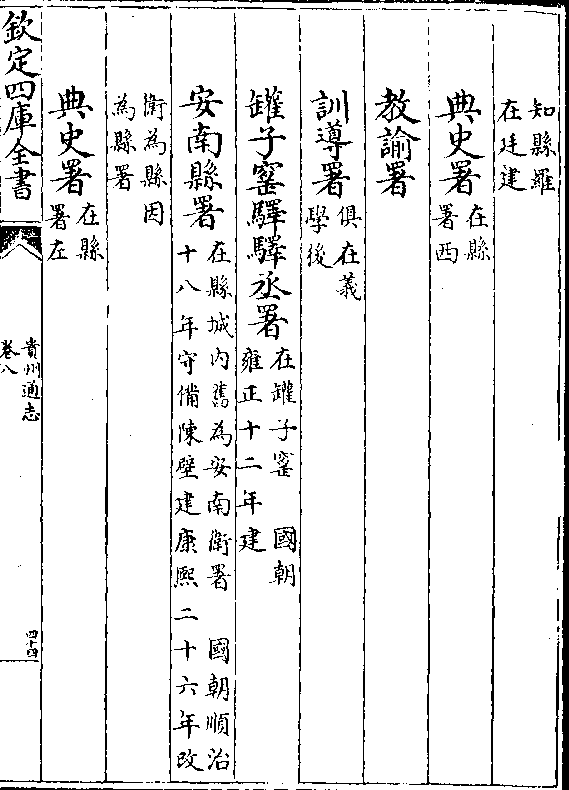 知縣羅
在廷建
典史署 在縣
署西
教諭署
訓導署 俱在義
學後
罐子窰驛驛丞署 在罐子窰 國朝
雍正十二年建
安南縣署 在縣城内舊為安南衛署 國朝順治
十八年守備陳壁建康熙二十六年改
衛為縣因
為縣署
典史署 在縣
署左
欽定四庫全書
貴州通志
卷八
四十四